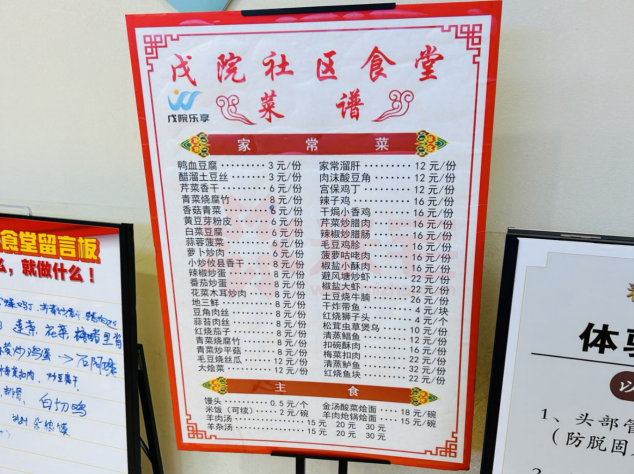 戊院社区食堂
戊院乐享
菜谱
家常菜
鸭血豆腐 3元/份
醋溜土豆丝 3元/份
芹菜香干 6元/份
青菜烧腐竹 8元/份
香菇青菜 6元/份
黄豆芽粉皮 6元/份
白菜豆腐 6元/份
蒜蓉菠菜 6元/份
萝卜炒肉 6元/份
小炒攸县香干 8元/份
辣椒炒蛋 8元/份
番茄炒蛋 8元/份
花菜木耳炒肉 8元/份
地三鲜 8元/份
豆角肉丝 8元/份
蒜苔肉丝 8元/份
红烧茄子 8元/份
青菜烧腐竹 8元/份
青菜炒平菇 8元/份
毛豆烧丝瓜 12元/份
大烩菜 12元/份
家常溜肝 12元/份
肉沫酸豆角 12元/份
宫保鸡丁 12元/份
辣子鸡 16元/份
干焗小香鸡 16元/份
芹菜炒腊肉 16元/份
辣椒炒腊肠 16元/份
毛豆鸡胗 16元/份
菠萝咕咾肉 16元/份
椒盐小酥肉 16元/份
避风塘炒虾 22元/份
椒盐大虾 22元/份
土豆烧牛腩 26元/份
干炸带鱼 4元/块
红烧狮子头 4元/个
松茸虫草煲乌 10元/份
清蒸鲳鱼 12元/份
扣碗酥肉 16元/份
梅菜扣肉 22元/份
清蒸鲈鱼 32元/份
红烧鱼块 22元/份
主食
馒头 0.5元/个
米饭(可续) 2元/碗
羊肉汤 15元 20元 30元
羊杂汤 15元 20元 30元
金汤酸菜烩面 18元/碗
羊肉炝锅烩面 15元/碗
食堂留言板
么,就做什么!
白切鸡
体
1、头部
(防脱固